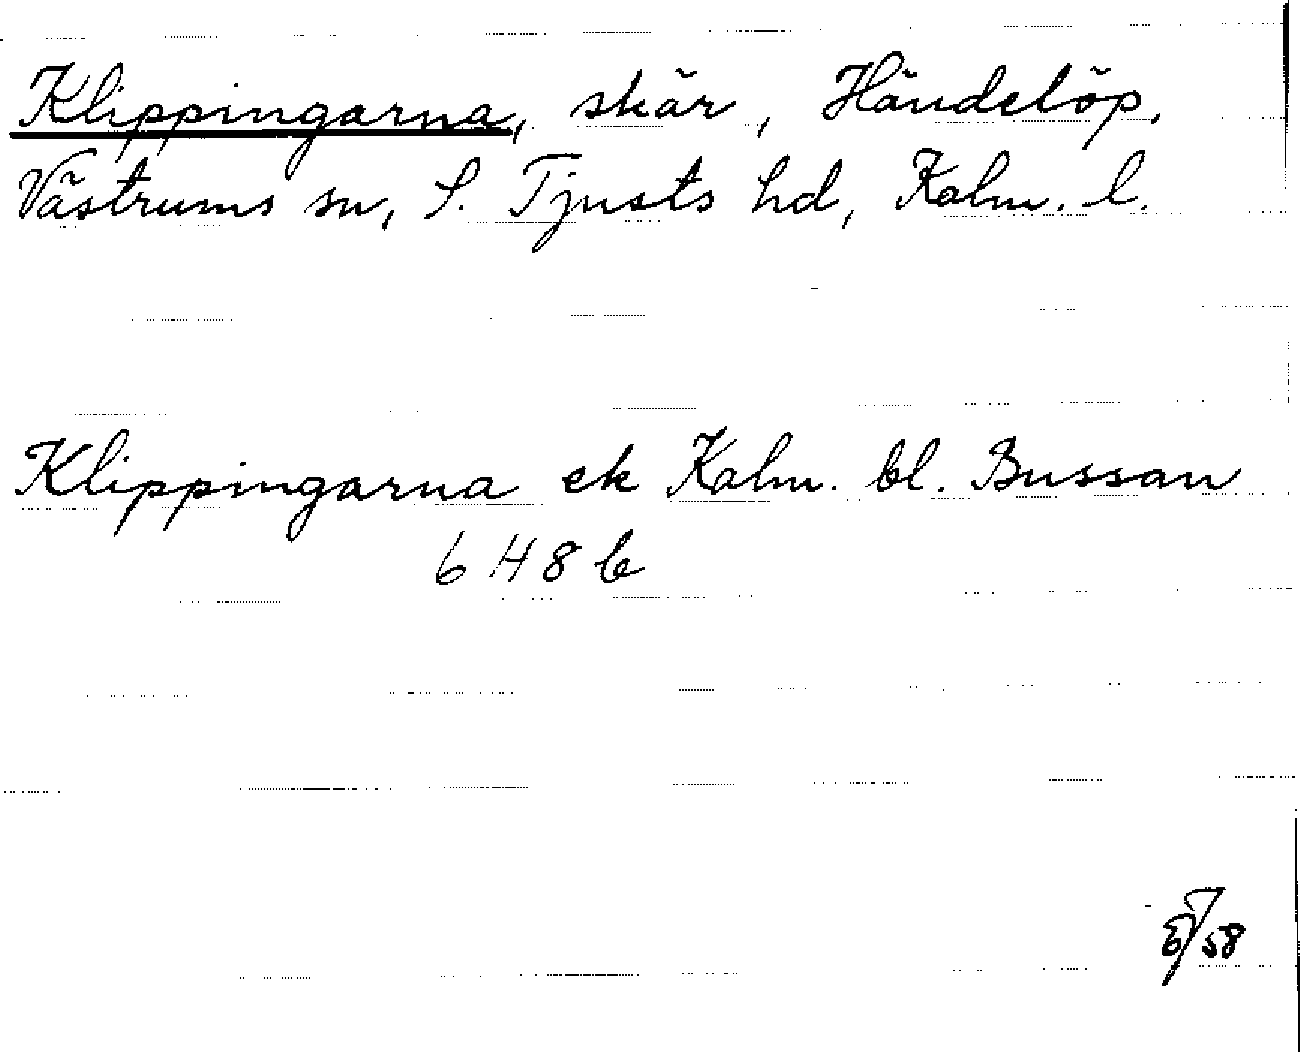 Klippingarna, skär, Händelöp,
Västrums sn, S. Tjusts hd, Kalm. l.
Klippingarna ek Kalm. bl. Bussan
6 H 8 b
58